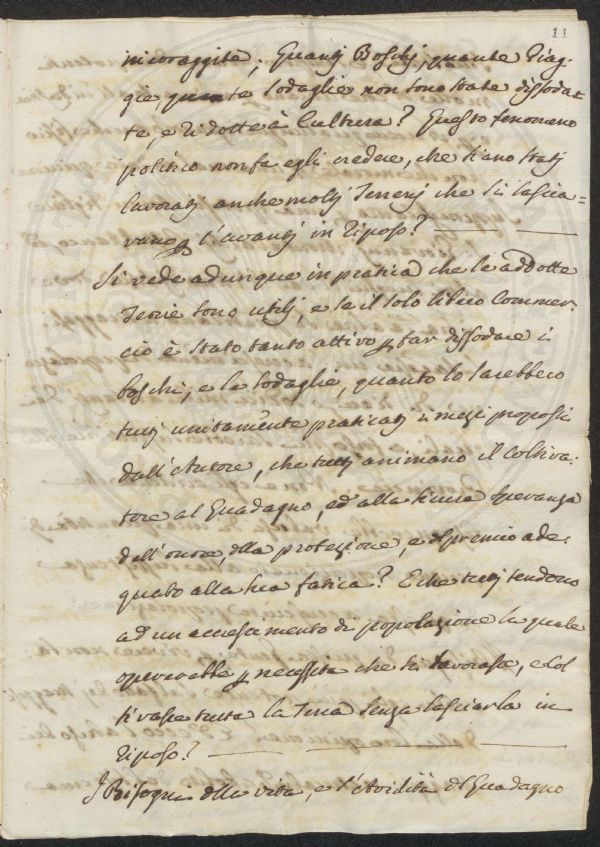 11
incoraggita; Quanti Boschj, quante Piag-
gie, quante Sodaglie non sono state dissoda=
te, e ridotte à Cultura? Questo fenomeno
politico non fa egli credere, che siano statj
lavoratj anche moltj Terrenj che si lascia=
vano p l'avantj in riposo?
Si vede adunque in pratica che le addotte
Teorie sono utilj, e se il solo libero Commer-
cio è stato tanto attivo p far dissodare i
boschi, e le Sodaglie, quanto lo sarebbero
tutti unitamente praticatj i mezi proposti
dall'Autore, che tuttj animano il Coltiva=
tore al Guadagno, ed alla sicura speranza
dell'onore, dlla protezione, e dl premio ade-
quato alla sua fatica? E che tuttj tendono
ad un accrescimento di popolazione la quale
opererebbe p necessità che si lavorasse, e Col
tivasse tutta la Terra senza lasciarla in
riposo?
I Bisogni dlla vita, e l'Avidità dl Guadagno